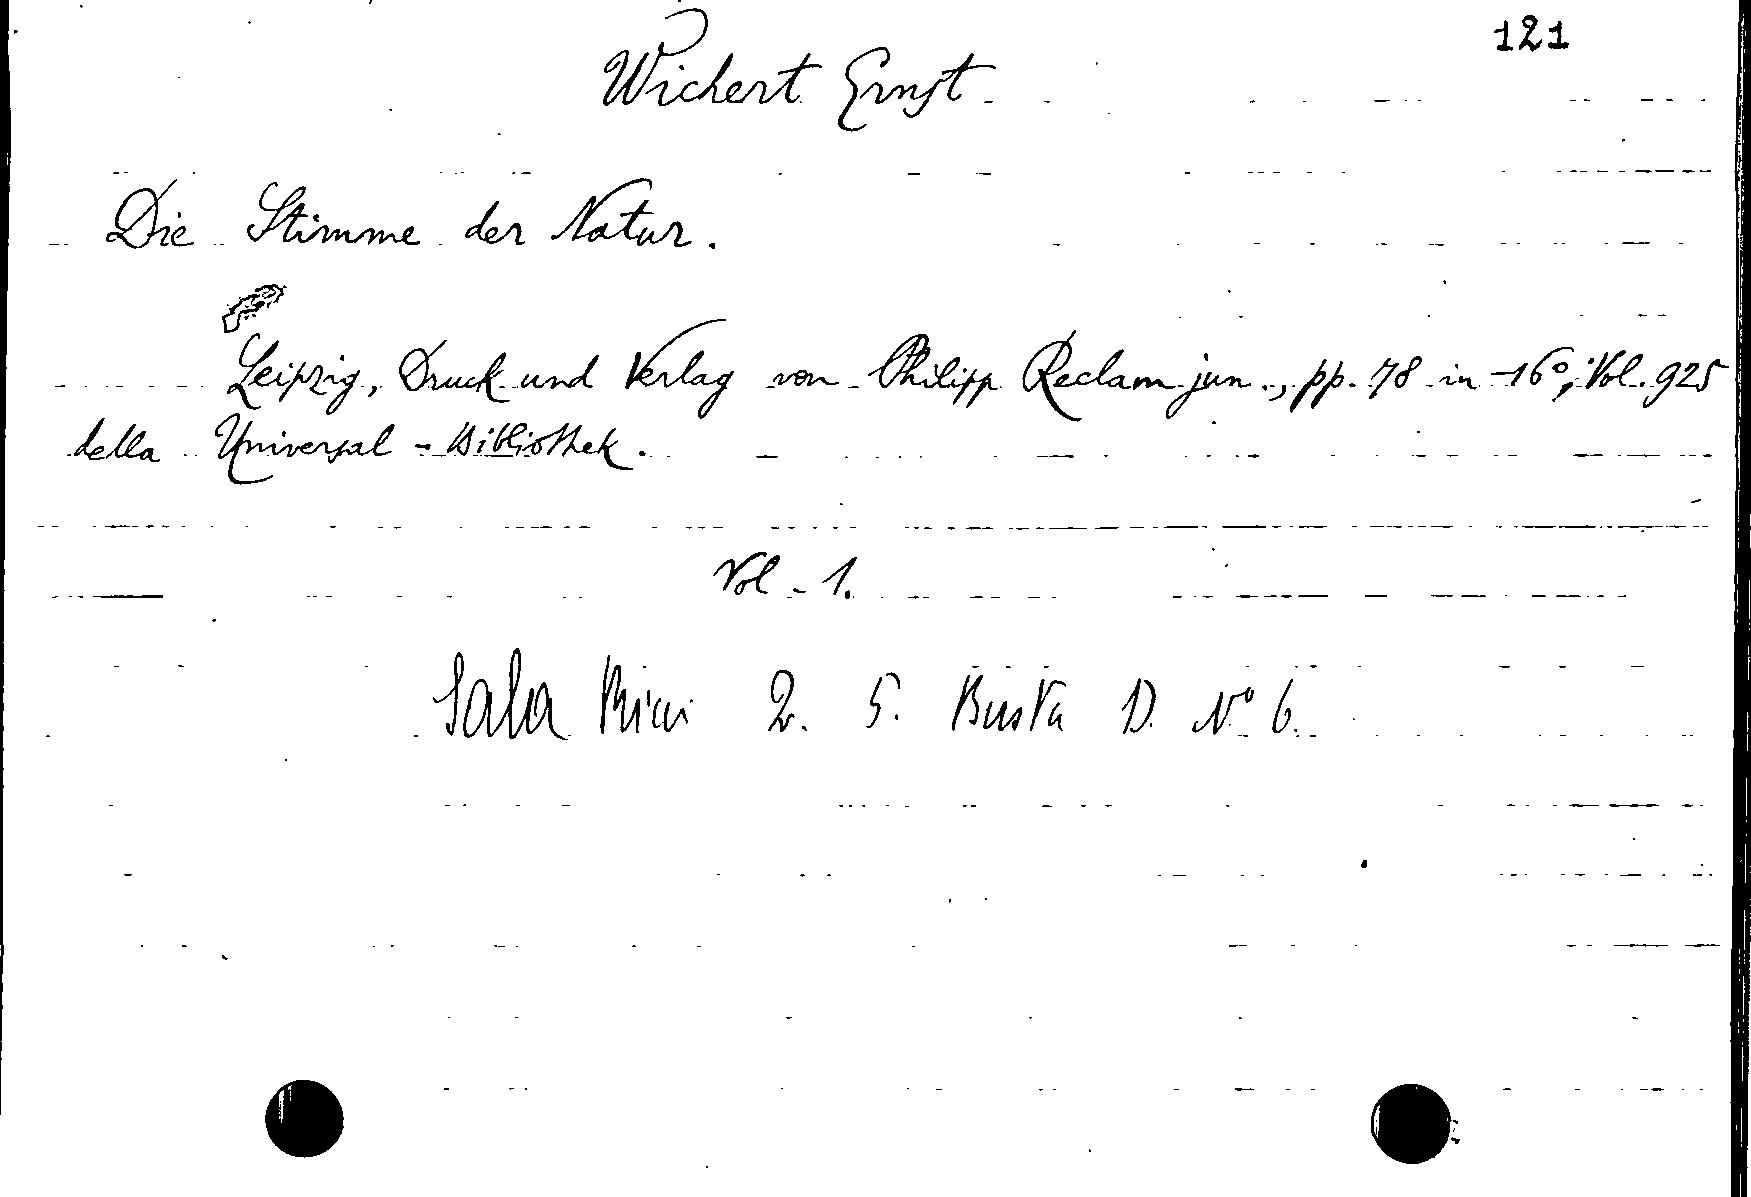 121
Wichert Ernst
Die Stimme der Natur.
Leipzig, Druck und Verlag von Philipp Reclam jun., pp. 78 in -16°, Vol. 925
della Universal-Bibliothek.
Vol - 1.
Sala Ricci 2. 5. Busta D. N° 6.